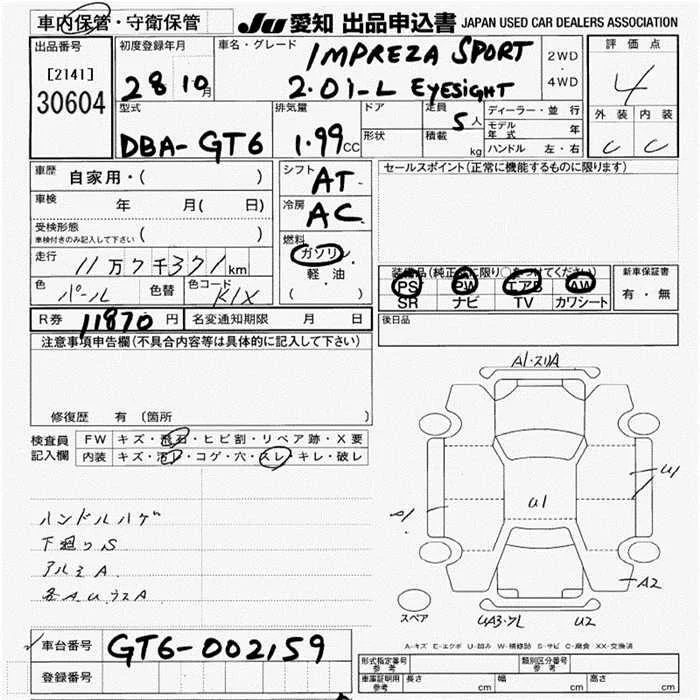 車内保管・守衛保管 Ju 愛知 出品申込書 JAPAN USED CAR DEALERS ASSOCIATION
出品番号 初度登録年月 車名・グレード 評価点
[2141] 28 10月 IMPREZA SPORT 2WD 4
30604 2.0i-L EYESIGHT 4WD
型式 排気量 ドア 定員 5人 ディーラー・並行 外装 内装
DBA-GT6 1.99CC 形状 積載 kg モデル年式 年 C C
ハンドル 左・右
車歴 自家用・( ) シフト AT セールスポイント(正常に機能するものに限ります)
車検 年 月( 日) 冷房 AC
受検形態 ( )
車検付きのみ記入して下さい
走行 11万7千371km 燃料 ガソリン 装備品(純正品に限り○をつけてください) 新車保証書
軽・油 PS PW エアB AW 有・無
色 パール 色替 色コード K1X ( ) SR ナビ TV カワシート
R券 11870円 名変通知期限 月 日 後日品
注意事項申告欄(不具合内容等は具体的に記入して下さい)
A1・スリA
修復歴 有 (箇所
検査員 FW キズ・飛石・ヒビ割・リペア跡・X要
記入欄 内装 キズ・汚レ・コゲ・穴・スレ・キレ・破レ
U1
A1 U1
ハンドルハゲ
下廻りS
アルミA
各A.U.ウスA
A2
スペア
UA3・ソレ U2
A-キズ E-エクボ U-凹み W-補修跡 S-サビ C-腐食 XX-交換済
車台番号 GT6-002159
登録番号
形式指定番号 参考 類別区分番号 参考
車庫証明用 参考 長さ cm 幅 cm 高さ cm